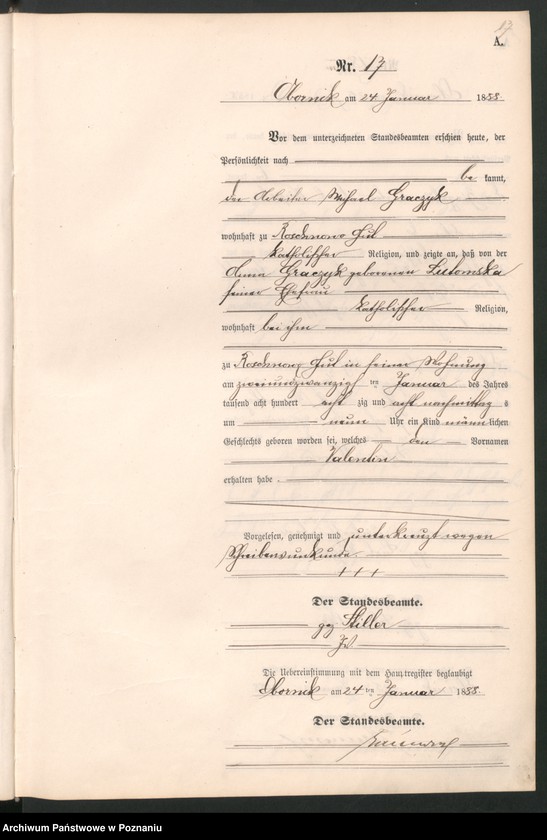 17
A.
Nr. 17
Obornik am 24 Januar 1888
Vor dem unterzeichneten Standesbeamten erschien heute, der
Persönlichkeit nach
be kannt,
der Arbeiter Michael Graczyk
wohnhaft zu Roschnowo Gut
katholischer Religion, und zeigte an, daß von der
Anna Graczyk geborenen Lutomska
seiner Ehefrau
katholischer Religion,
wohnhaft bei ihm
zu Roschnowo Gut in seiner Wohnung
am zweiundzwanzigs ten Januar des Jahres
tausend acht hundert acht zig und acht nachmittag s
um neun Uhr ein Kind männlichen
Geschlechts geboren worden sei, welches den Vornamen
Valentin
erhalten habe.
Vorgelesen, genehmigt und unterkreuzt wegen
Schreibensunkunde
+ + +
Der Standesbeamte.
gez Stiller
Die Uebereinstimmung mit dem Hauptregister beglaubigt
Obornik am 24 ten Januar 1888.
Der Standesbeamte.
Archiwum Państwowe w Poznaniu